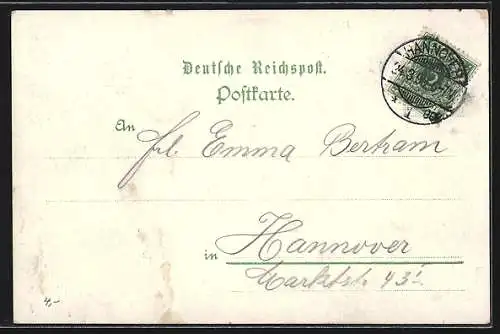 Deutsche Reichspost.
Postkarte.
HANNOVER
An frl. Emma Bertram
in Hannover
Marktstr. 43
4,-